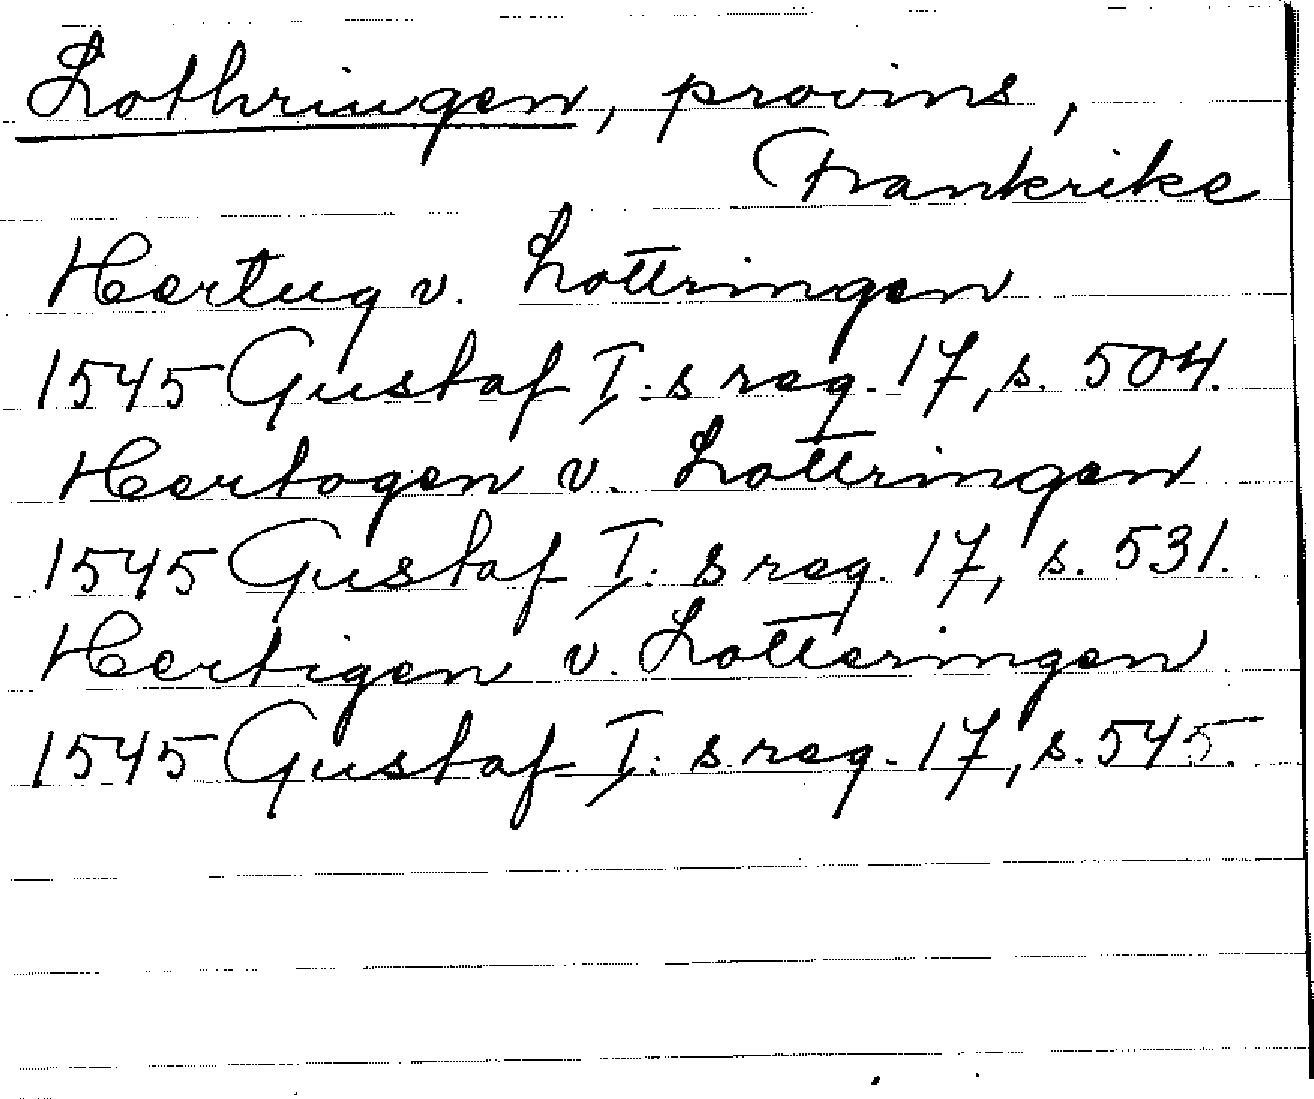 Lothringen, provins,
Frankrike
Hertug v. Lottringen
1545 Gustaf I:s reg. 17, s. 504.
Hertogen v. Lottringen
1545 Gustaf I:s reg. 17, s. 531.
Hertigen v. Lotteringen
1545 Gustaf I:s reg. 17, s. 545.